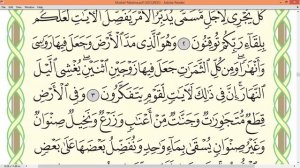 Mushaf Madinah.pdf (SECURED) - Adobe Reader
كُلٌّ يَجْرِي لِأَجَلٍ مُّسَمًّى يُدَبِّرُ الْأَمْرَ يُفَصِّلُ الْآيَاتِ لَعَلَّكُم
بِلِقَاءِ رَبِّكُمْ تُوقِنُونَ ٢ وَهُوَ الَّذِي مَدَّ الْأَرْضَ وَجَعَلَ فِيهَا رَوَاسِيَ
وَأَنْهَارًا وَمِن كُلِّ الثَّمَرَاتِ جَعَلَ فِيهَا زَوْجَيْنِ اثْنَيْنِ يُغْشِي الَّيْلَ
النَّهَارَ إِنَّ فِي ذَٰلِكَ لَآيَاتٍ لِّقَوْمٍ يَتَفَكَّرُونَ ٣ وَفِي الْأَرْضِ
قِطَعٌ مُّتَجَاوِرَاتٌ وَجَنَّاتٌ مِّنْ أَعْنَابٍ وَزَرْعٌ وَنَخِيلٌ صِنْوَانٌ
وَغَيْرُ صِنْوَانٍ يُسْقَىٰ بِمَاءٍ وَاحِدٍ وَنُفَضِّلُ بَعْضَهَا عَلَىٰ بَعْضٍ